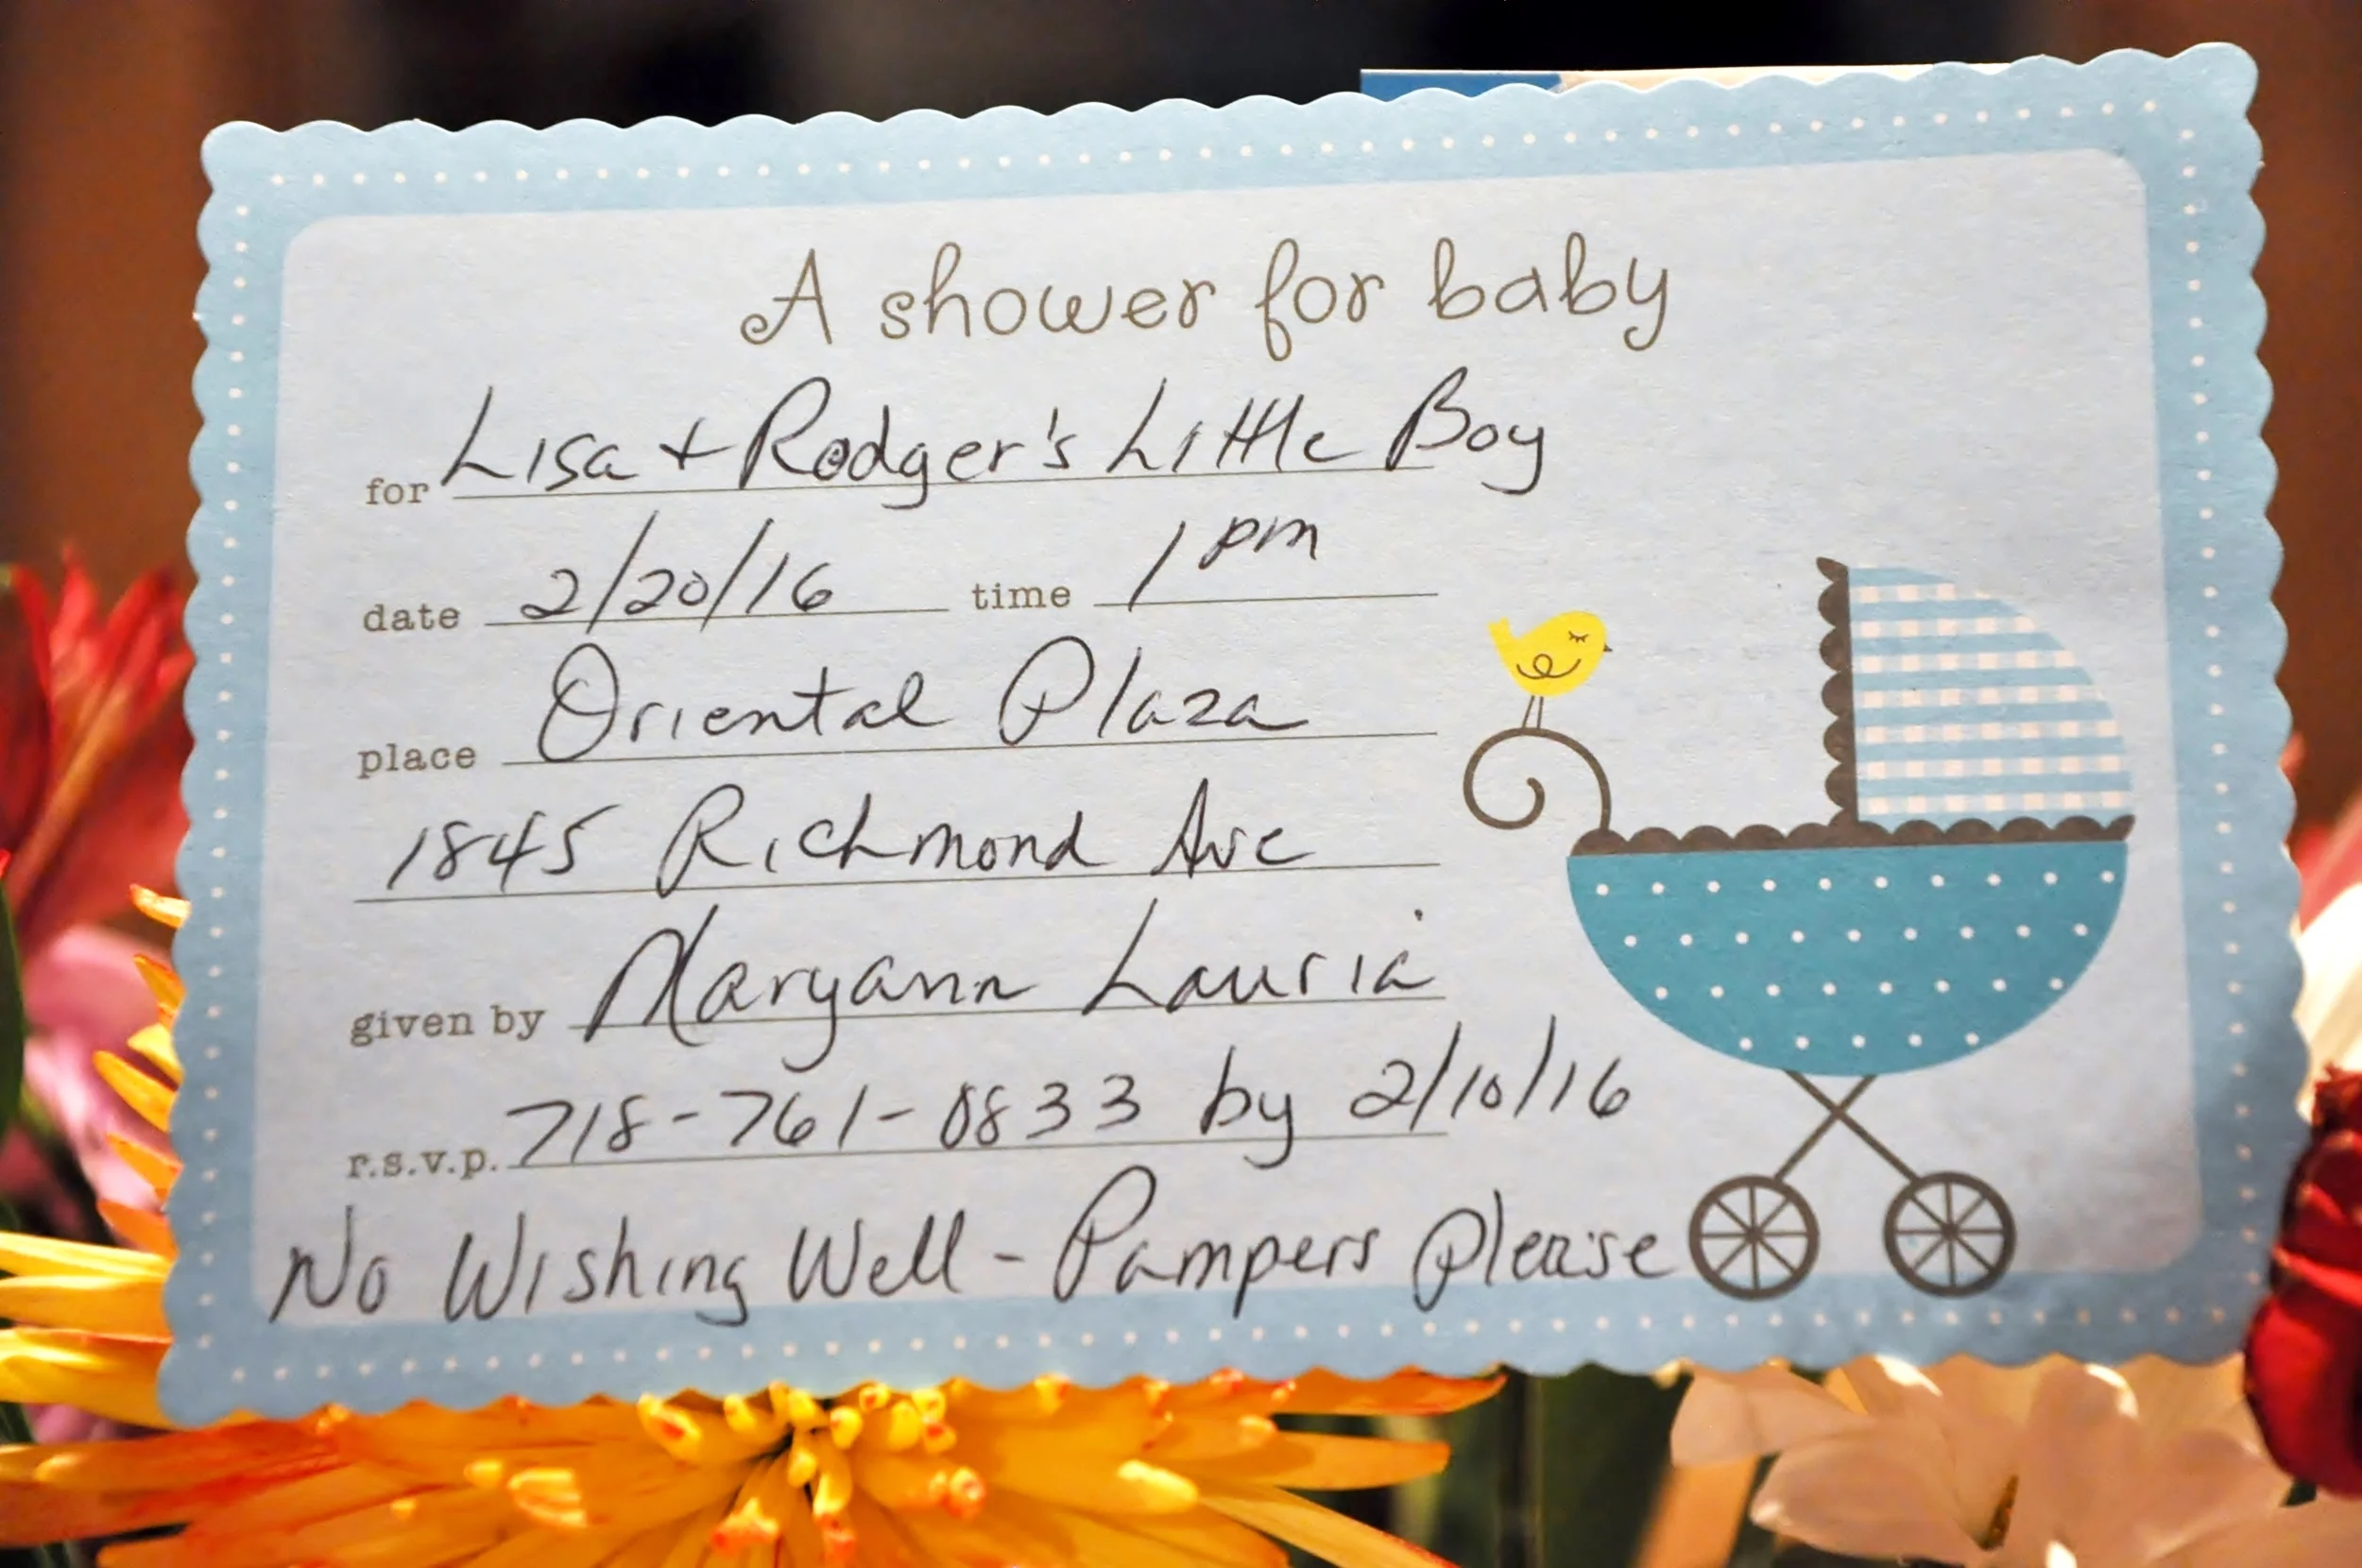 A shower for baby
for Lisa + Rodger's Little Boy
date 2/20/16 time 1 pm
place Oriental Plaza
1845 Richmond Ave
given by Maryann Lauria
r.s.v.p. 718-761-0833 by 2/10/16
No Wishing Well - Pampers Please